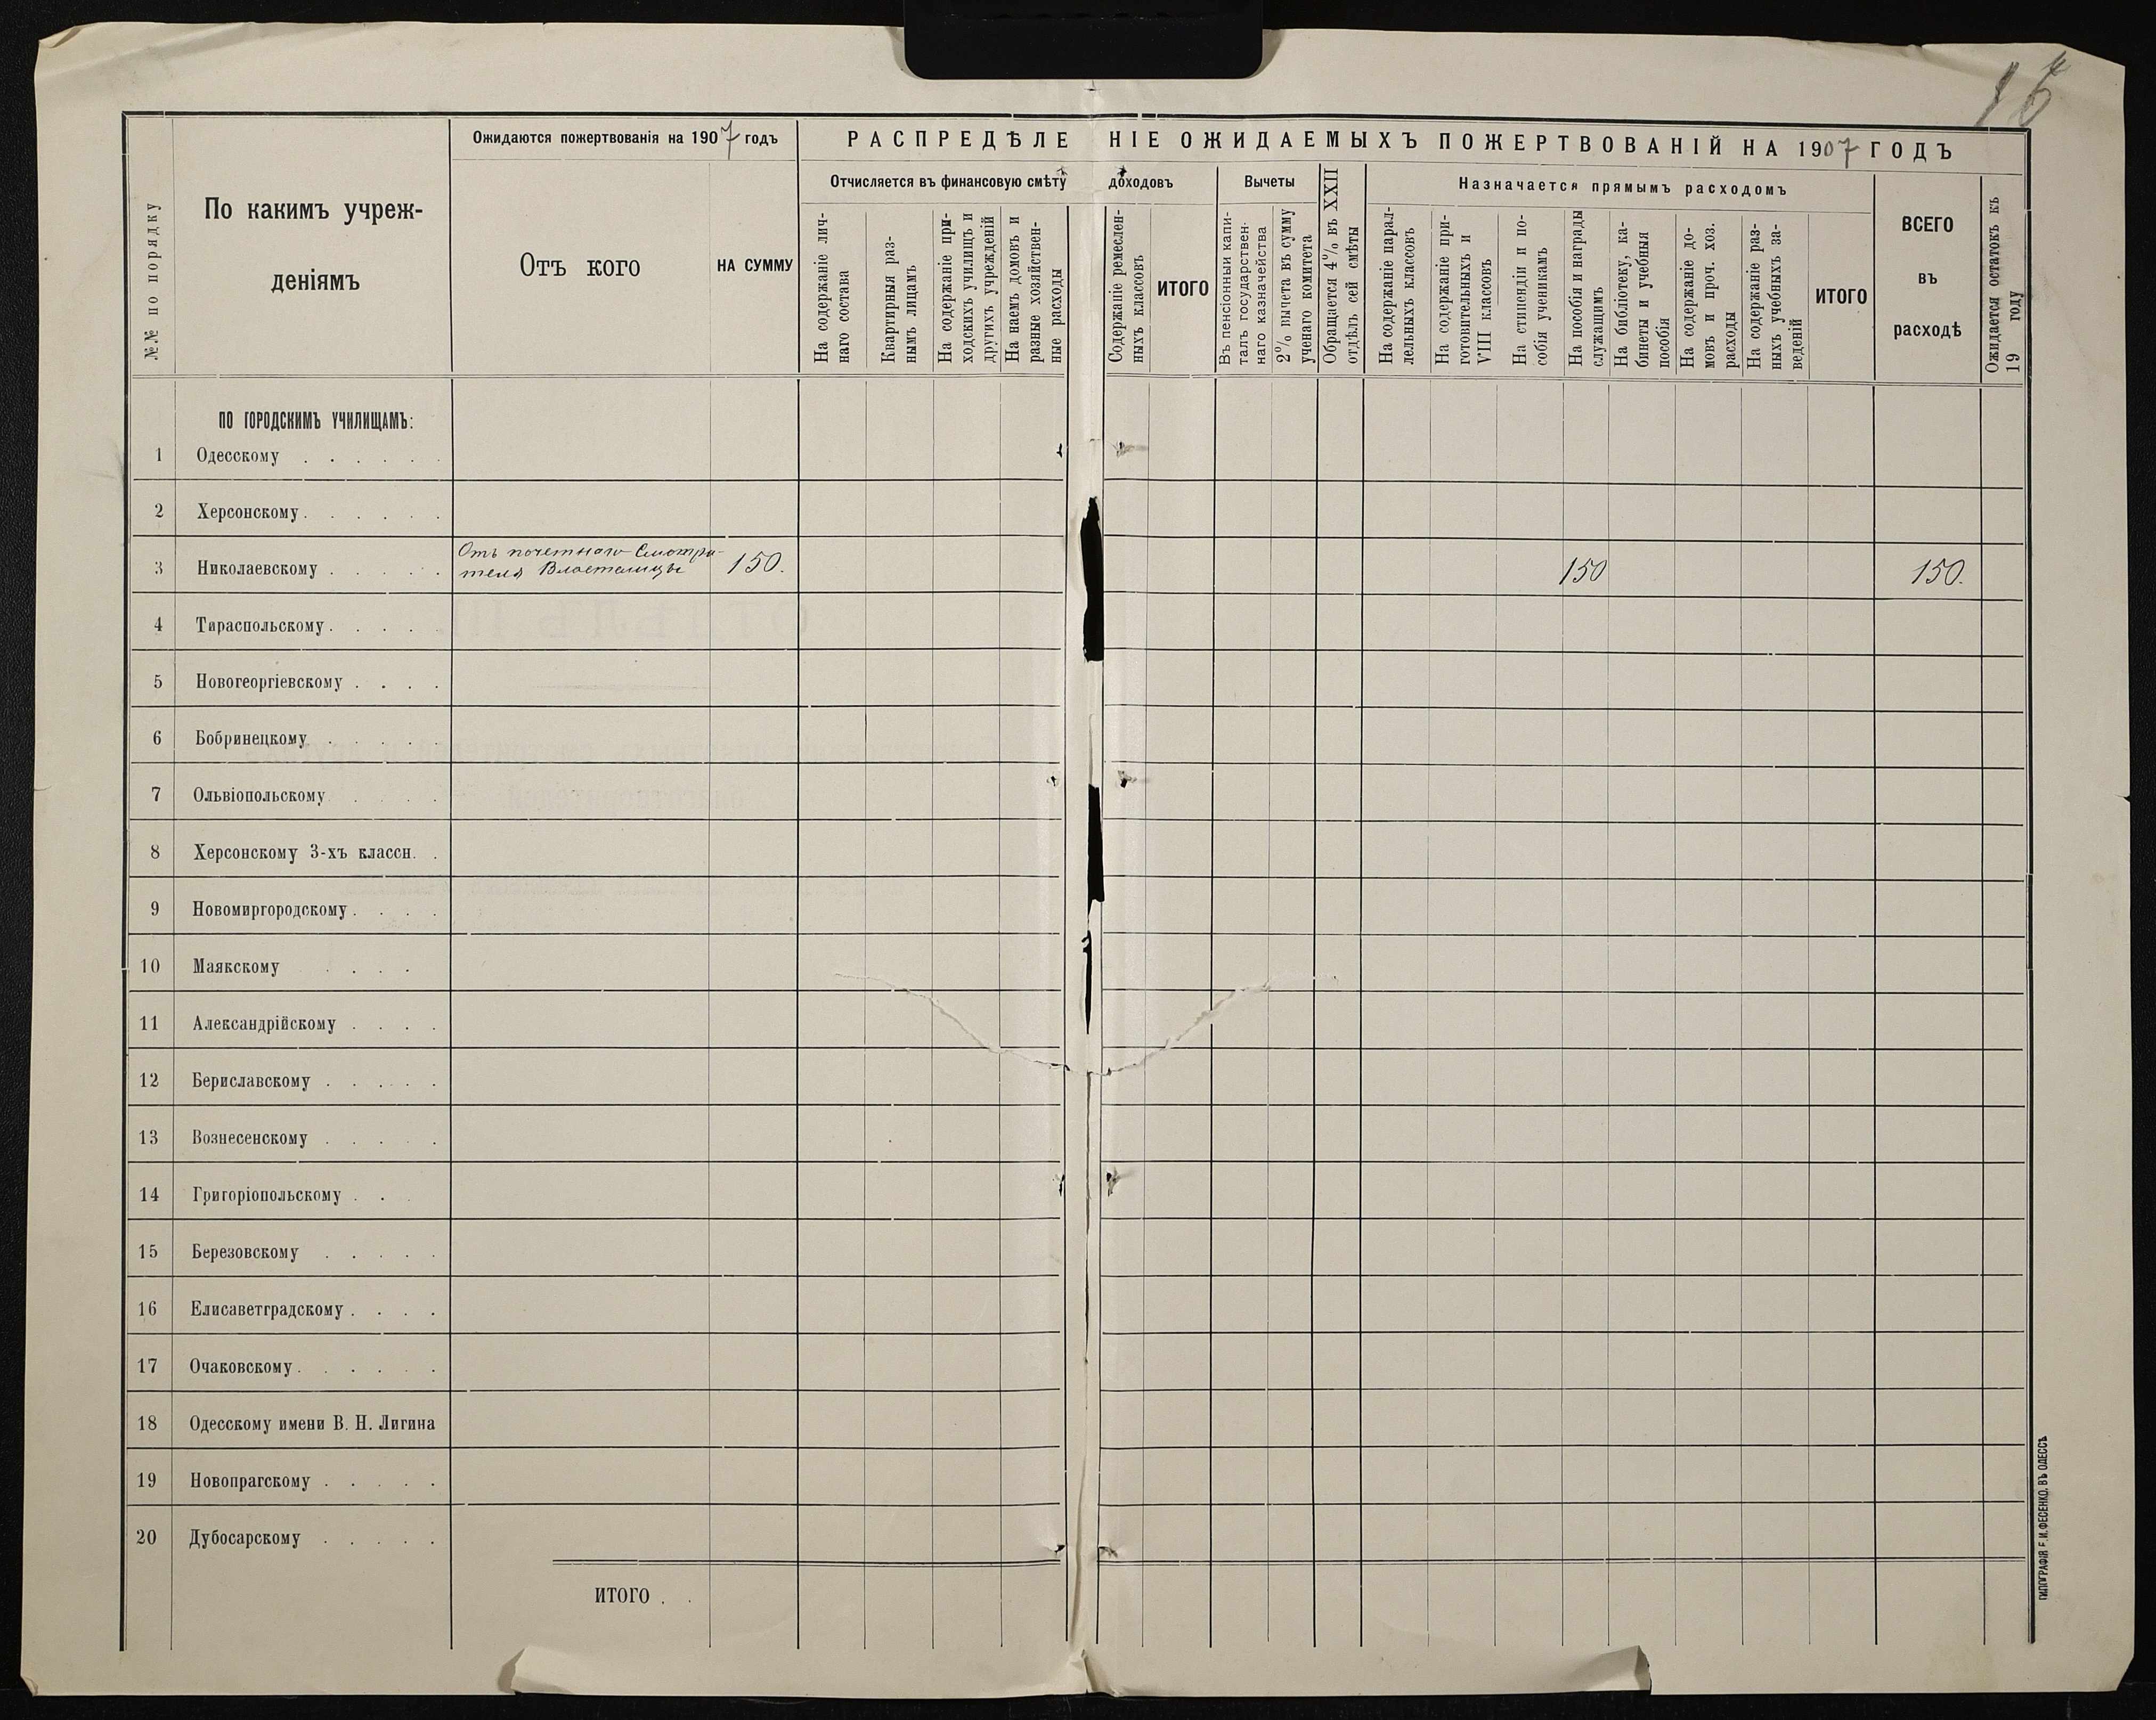 16
Ожидаются пожертвованія на 1907 годъ
РАСПРЕДѢЛЕНІЕ ОЖИДАЕМЫХЪ ПОЖЕРТВОВАНІЙ НА 1907 ГОДЪ
№№ по порядку
По какимъ учреж-
деніямъ
Отъ кого
НА СУММУ
Отчисляется въ финансовую смѣту доходовъ
На содержаніе лич-
наго состава
Квартирныя раз-
нымъ лицамъ
На содержаніе при-
ходскихъ училищъ и
другихъ учрежденій
На наемъ домовъ и
разные хозяйствен-
ные расходы
Содержаніе ремеслен-
ныхъ классовъ
ИТОГО
Вычеты
Въ пенсіонный капи-
талъ государствен.
наго казначейства
2% вычета въ сумму
ученаго комитета
Обращается 4% въ XXII
отдѣлъ сей смѣты
Назначается прямымъ расходомъ
На содержаніе парал-
лельныхъ классовъ
На содержаніе при-
готовительныхъ и
VIII классовъ
На стипендіи и по-
собія ученикамъ
На пособія и награды
служащимъ
На библіотеку, ка-
бинеты и учебныя
пособія
На содержаніе до-
мовъ и проч. хоз.
расходы
На содержаніе раз-
ныхъ учебныхъ за-
веденій
ИТОГО
ВСЕГО
въ
расходѣ
Ожидается остатокъ къ
19 году
ПО ГОРОДСКИМЪ УЧИЛИЩАМЪ:
1 Одесскому . . . . . .
2 Херсонскому . . . . . .
3 Николаевскому . . . . . Отъ почетнаго Смотри-
теля Властелицы 150. 150 150.
4 Тираспольскому . . . .
5 Новогеоргіевскому . . . .
6 Бобринецкому . . . . .
7 Ольвіопольскому . . . .
8 Херсонскому 3-хъ классн. .
9 Новомиргородскому . . . .
10 Маякскому . . . .
11 Александрійскому . . . .
12 Бериславскому . . . . .
13 Вознесенскому . . . . .
14 Григоріопольскому . . .
15 Березовскому . . . . .
16 Елисаветградскому . . . .
17 Очаковскому . . . . . .
18 Одесскому имени В. Н. Лигина
19 Новопрагскому . . . . .
20 Дубосарскому . . . . .
ИТОГО . .
ТИПОГРАФІЯ Е. И. ФЕСЕНКО, ВЪ ОДЕССѢ